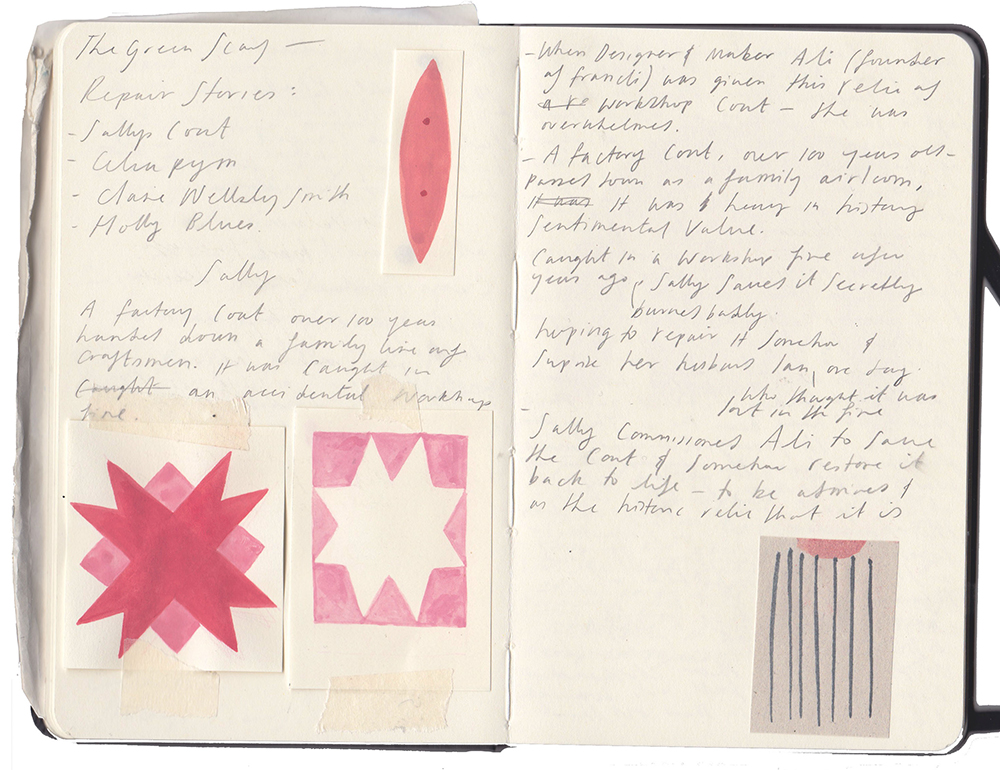 The Green Scarf —
Repair Stories:
- Sallys Coat
- Celia pym
- Claire Wellesley Smith
- Holly Blues.
Sally
A factory Coat over 100 years
handed down a family line of
Craftsmen. It was caught in
Caught an accidental workshop
fire.
- When Designer & Maker Ali (founder
of francli) was given this relic of
a workshop Coat — she was
overwhelmed.
- A factory Coat, over 100 years old -
passed down as a family airloom,
It was It was heavy in history
Sentimental value.
Caught in a workshop fire a few
years ago, Sally saves it secretly
burned badly.
hoping to repair it somehow &
suprise her husband Ian, one day.
who thought it was
lost in the fire
-
Sally Commissioned Ali to save
the Coat & somehow restore it
back to life — to be admired &
as the historic relic that it is